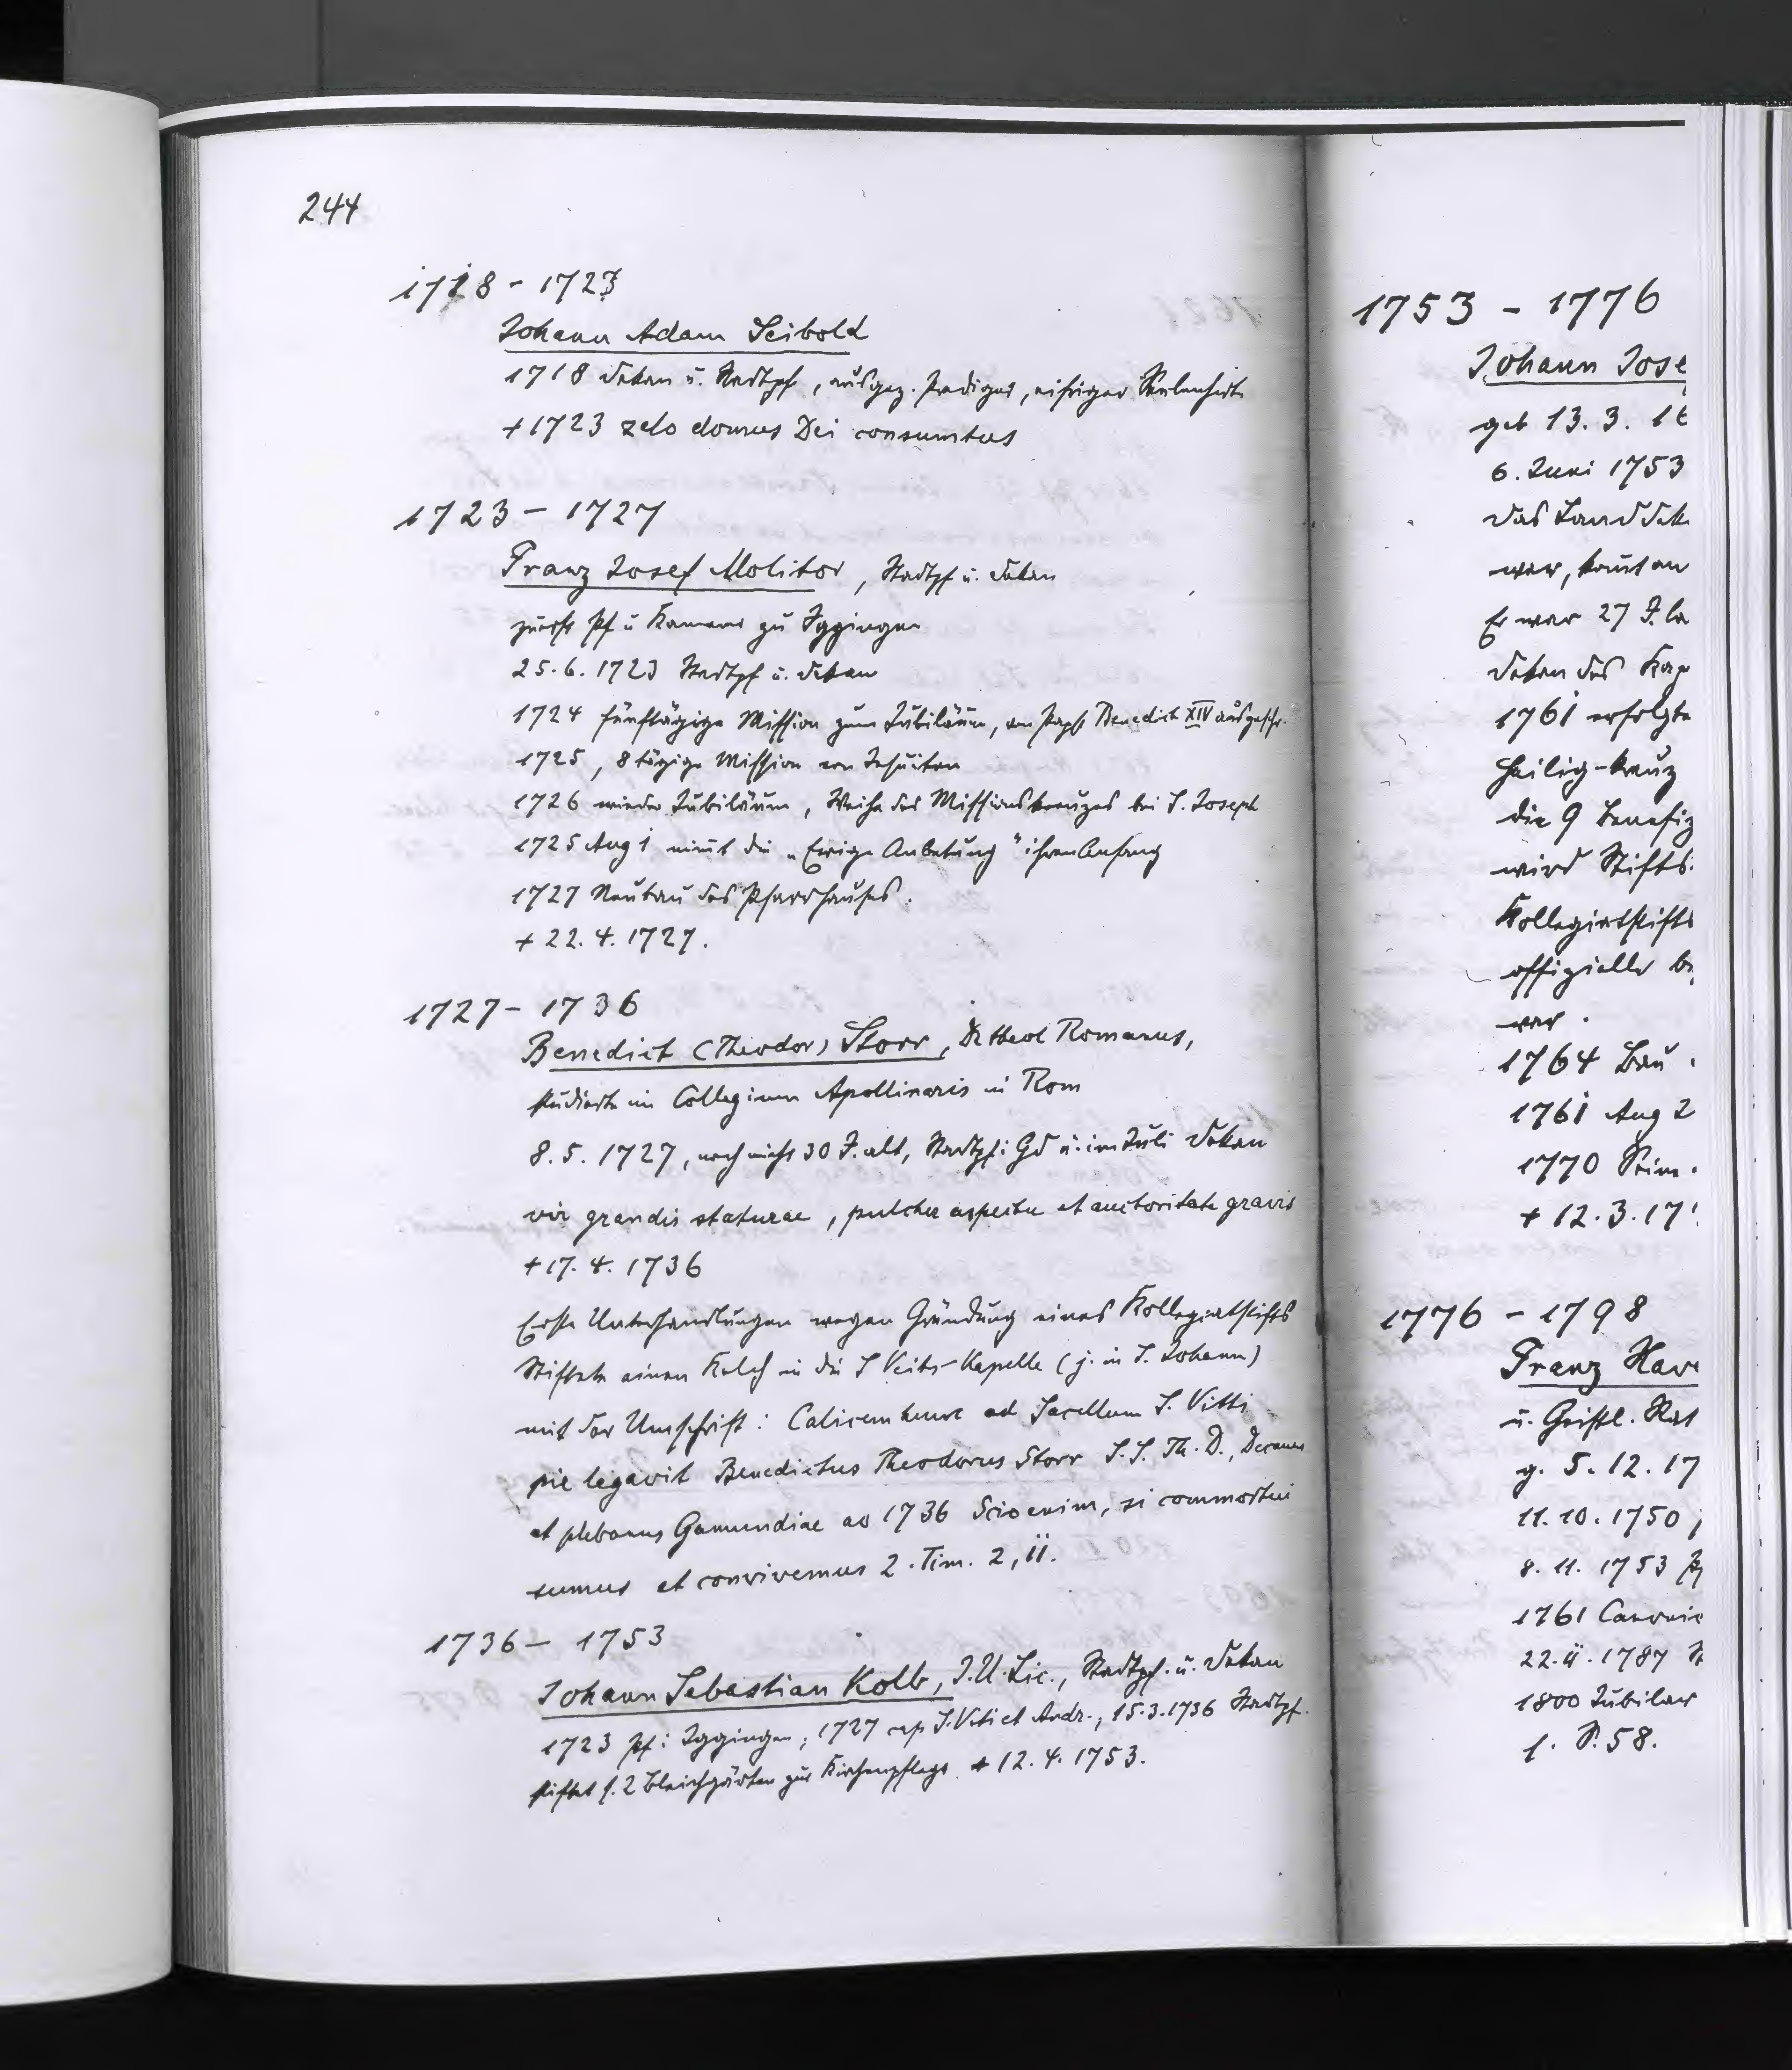 244
1718 - 1723
Johann Adam Seibold
1718 Dekan u. Stadtpf., ausgez. Prediger, eifriger Seelenhirte
+ 1723 zelo domus Dei consumtus
1723 - 1727
Franz Josef Molitor, Stadtpf u. Dekan
zuerst Pf u Kamerer zu Iggingen
25.6.1723 Stadtpf u. Dekan
1724 fünftägige Mission zum Jubiläum, von Papst Benedict XIV ausgeschr.
1725, 8 tägige Mission von Jesuiten
1726 wieder Jubiläum, Weihe des Missionskreuzes bei S. Joseph
1725 Aug 1 nimt die „Ewige Anbetung" ihren Anfang
1727 Neubau des Pfarrhauses.
+ 22.4.1727.
1727 - 1736
Benedict (Theodor) Storr, Dr theol Romanus,
studierte im Collegium Apollinaris in Rom
8.5.1727, noch nicht 30 J. alt, Stadtpf. i Gd u. im Juli Dekan
vir grandis staturae, pulcher aspectu et auctoritate gravis
+ 17.4.1736
Erste Unterhandlungen wegen Gründung eines Kollegiatstifts
Stiftete einen Kelch in die S Veits-Kapelle (j. in S. Johann)
mit der Umschrift: Calicem hunc ad Sacellum S. Vitti
pie legavit Benedictus Theodorus Storr S.S. Th. D., Decanus
et plebanus Gamundiae ao 1736 Scio enim, si commortui
sumus et convivemus 2. Tim. 2, 11.
1736 - 1753
Johann Sebastian Kolb, J.U. Lic., Stadtpf. u. Dekan
1723 Pf. i Iggingen, 1727 cap S. Viti et Andr., 15.3.1736 Stadtpf.
stiftet s. 2 Bleichgärten zur Kirchenpflege + 12.4.1753.
1753 - 1776
Johann Jose
geb 13.3. 16
6. Juni 1753
das Landdek
war, konnt an
Er war 27 J. la
Dekan des Kap
1761 erfolgte
Heilig-kreuz
die 9 Benefiz
wird Stifts
Kollegiatstifts
offizielle be
war.
1764 Bau
1761 Aug 2
1770 Prim.
+ 12.3.17
1776 - 1798
Franz Xave
u. Geistl. Rat
g. 5.12.17
11.10.1750
8.11.1753
1761 Canonic
22.11.1787
1800 Jubilar
s. S. 58.